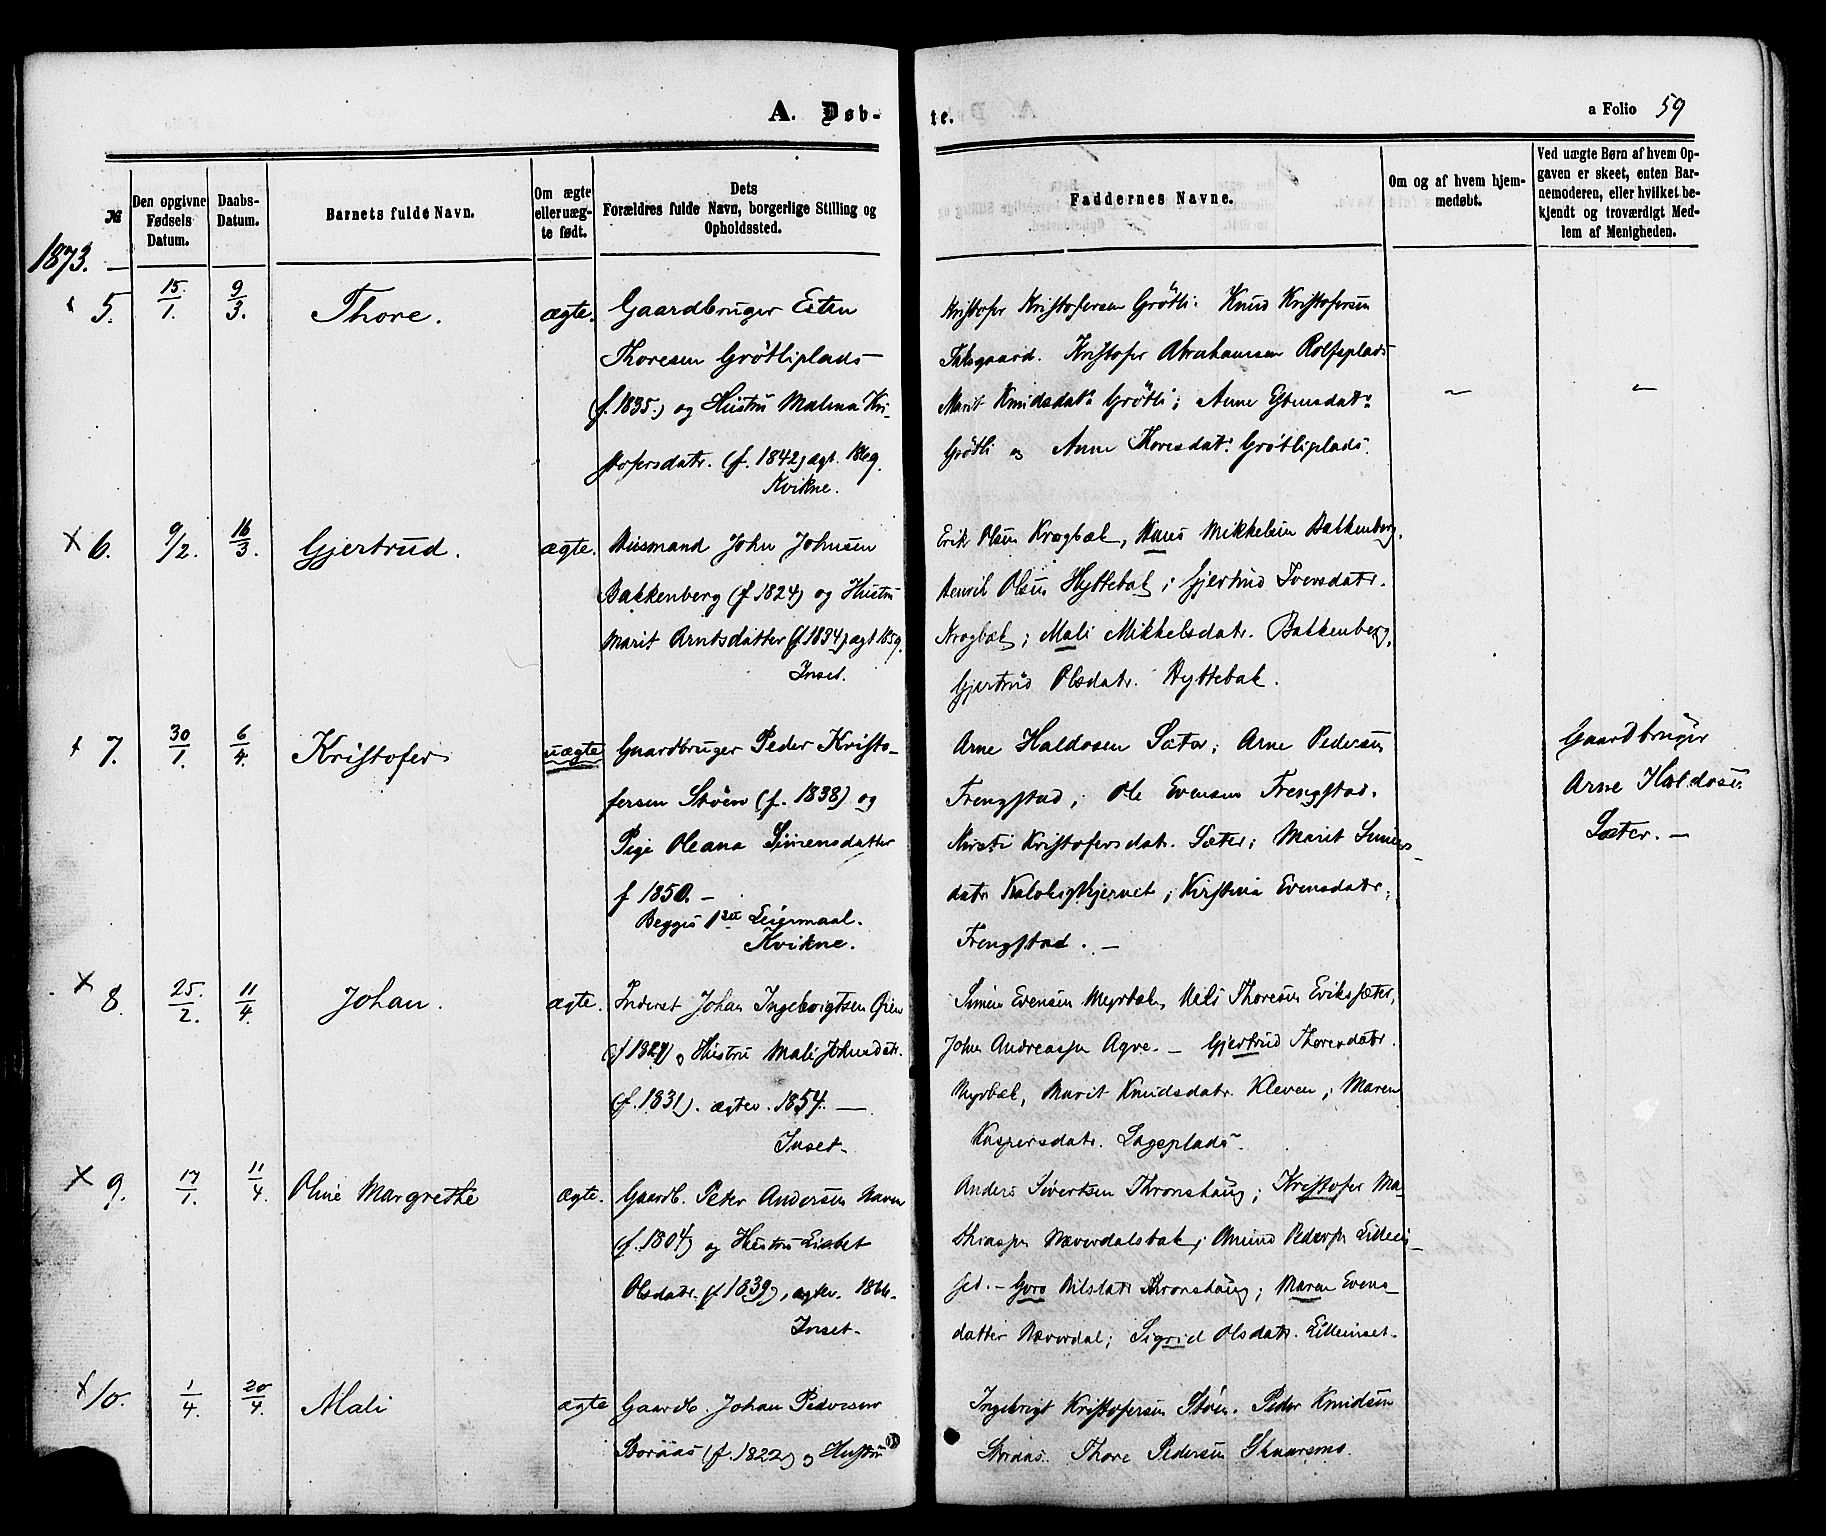 A. Døb-
te.
a Folio 59
№
Den opgivne Fødsels Datum.
Daabs-Datum.
Barnets fulde Navn.
Om ægte eller uæg-te født.
Dets
Forældres fulde Navn, borgerlige Stilling og Opholdssted.
Faddernes Navne.
Om og af hvem hjem-medøbt.
Ved uægte Børn af hvem Op-gaven er skeet, enten Bar-nemoderen, eller hvilket be-kjendt og troværdigt Med-lem af Menigheden.
1873.
5. 15/1. 9/3. Thore. ægte.
Gaardbruger Esten
Thoresen Grøtliplads
(f. 1835.) og Hustru Malena Kri-
stofersdatr. (f. 1842) ægt. 1869.
Kvikne.
Kristofer Kristofersen Grøtli. Knud Kristofersen
Kristofer Abrahamsen Rolfsplads
Marit Knudsdatr Grøtli; Anne Estensdatr
Grøtli og Anne Thoresdatr. Grøtliplads.
6. 9/2. 16/3. Gjertrud. ægte.
Husmand John Johnsen
Bakkenberg (f. 1824) og Hustru
Marit Arntsdatter (f. 1834) ægt 1859.
Inset.
Erik Olsen Krogbæk, Hans Mikkelsen Bakkenberg.
Henrik Olsen Hyttebak; Gjertrud Iversdatr.
Krogbæk; Mali Mikkelsdatr. Bakkenberg,
Gjertrud Olsdatr. Hyttebak.
7. 30/1. 6/4. Kristofer uægte
Gaardbruger Peder Kristo-
fersen Støen (f. 1838) og
Pige Oleana Simensdatter
f 1850. -
Begges 1ste Leiermaal.
Kvikne.
Arne Haldosen Sæter; Arne Pedersen
Frengstad; Ole Evensen Frengstad.
Kirsti Kristofersdatr. Sæter; Marit Simens-
datr. ; Kirstina Evensdatr.
Frengstad. -
Gaardbruger
Arne Haldosen
Sæter. -
8. 25/2. 11/4. Johan. ægte.
Inderst Johan Ingebrigtsen Øien
(f 1829) og Hustru Mali Johnsdatr.
(f. 1831). ægtev. 1854. -
Inset.
Simen Evensen Myrbæk, Nels Thoresen Eriksæter,
John Andreassen Agre. - Gjertrud Thoresdatr.
Myrbæk, Marit Knudsdatr. Kleven; Maren
Kaspersdatr. Lageplads.
9. 17/1. 11/4. Oline Margrethe ægte.
Gaardb. Peter Andersen Naven
(f. 1804) og Hustru Lisbet
Olsdatr. (f 1839), ægtev. 1866.
Inset.
Anders Sivertsen Thronshaug; Kristofer Ma-
thiassen Næverdalsbak; Amund Pedersen Lillein-
set. - Goro Nilsdatr Thronshaug; Maren Evens-
datter Næverdal; Sigrid Olsdatr. Lilleinset.
10. 1/4. 20/4. Mali ægte
Gaardb. Johan Pedersen
Storaas (f. 1822) og Hustru
Ingebrigt Kristofersen Støen. Peder Knudsen
Storaas. Thore Pedersen Skaarsmo.